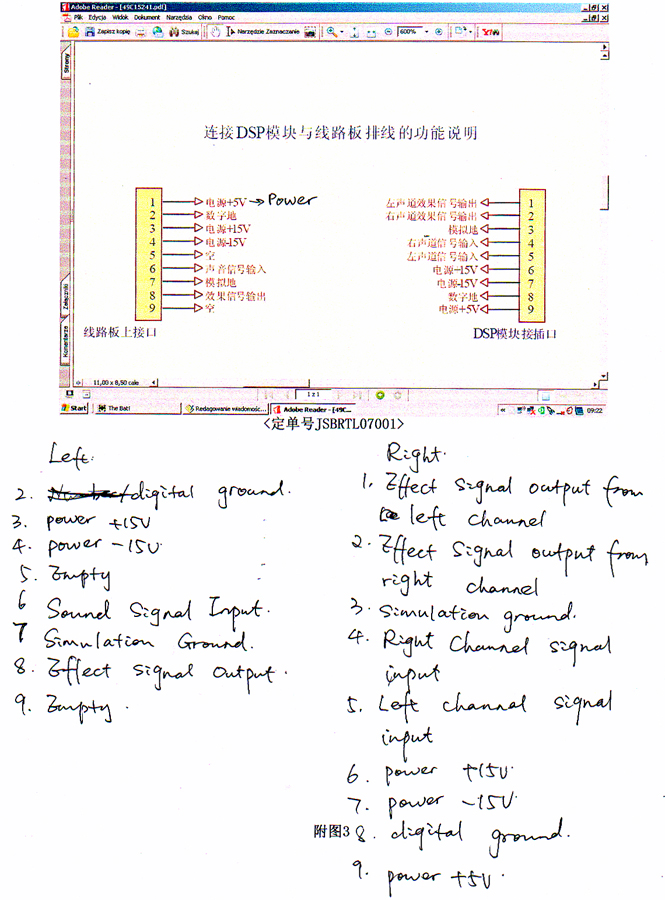 Adobe Reader - [49C15241.pdf]
Plik Edycja Widok Dokument Narzędzia Okno Pomoc
Zapisz kopię Szukaj Narzędzie Zaznaczanie 600%
Strony
连接DSP模块与线路板排线的功能说明
1 电源+5V → Power
2 数字地
3 电源+15V
4 电源-15V
5 空
6 声音信号输入
7 模拟地
8 效果信号输出
9 空
线路板上接口
左声道效果信号输出 1
右声道效果信号输出 2
模拟地 3
右声道信号输入 4
左声道信号输入 5
电源+15V 6
电源-15V 7
数字地 8
电源+5V 9
DSP模块接插口
Załączniki
Komentarze
11,00 x 8,50 cale
1 z 1
Start The Bat! Redagowanie wiadomośc... Adobe Reader - [49C... 09:22
<定单号JSBRTL07001>
Left.
2. digital ground.
3. power +15V
4. power -15V
5. Empty
6 Sound Signal Input.
7 Simulation Ground.
8. Effect signal Output.
9. Empty.
Right.
1. Effect signal output from
left channel
2. Effect signal output from
right channel
3. simulation ground.
4. Right Channel signal
input
5. Left channel signal
input
6. power +15V
7. power -15V
8. digital ground.
9. power +5V
附图3